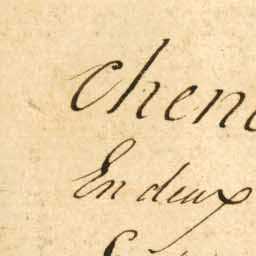 chen
En deux